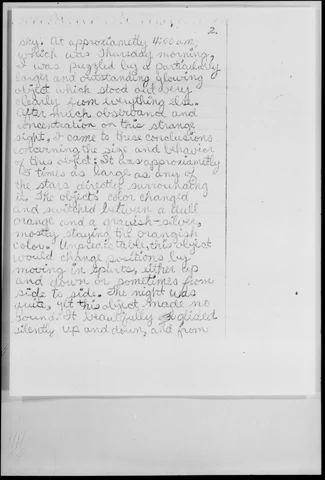 2.
sky. At approxiametly 4:00 a.m.
which was Thursday morning,
I was puzzled by a particularly
larger and outstanding glowing
object which stood out very
clearly from everything else.
After much observance and
concentration on this strange
sight, I came to these conclusions
concerning the size and behavior
of this object: It was approxiametly
times as large as any of
the stars directly surrounding
it. The object's color changed
and switched between a dull
orange and a grayish-silver,
mostly staying the orangish
color. Unpredictable, this object
would change positions by
moving in spurts, either up
and down or sometimes from
side to side. The night was
quiet, yet this object made no
sound. It beautifully glided
silently, up and down, and from